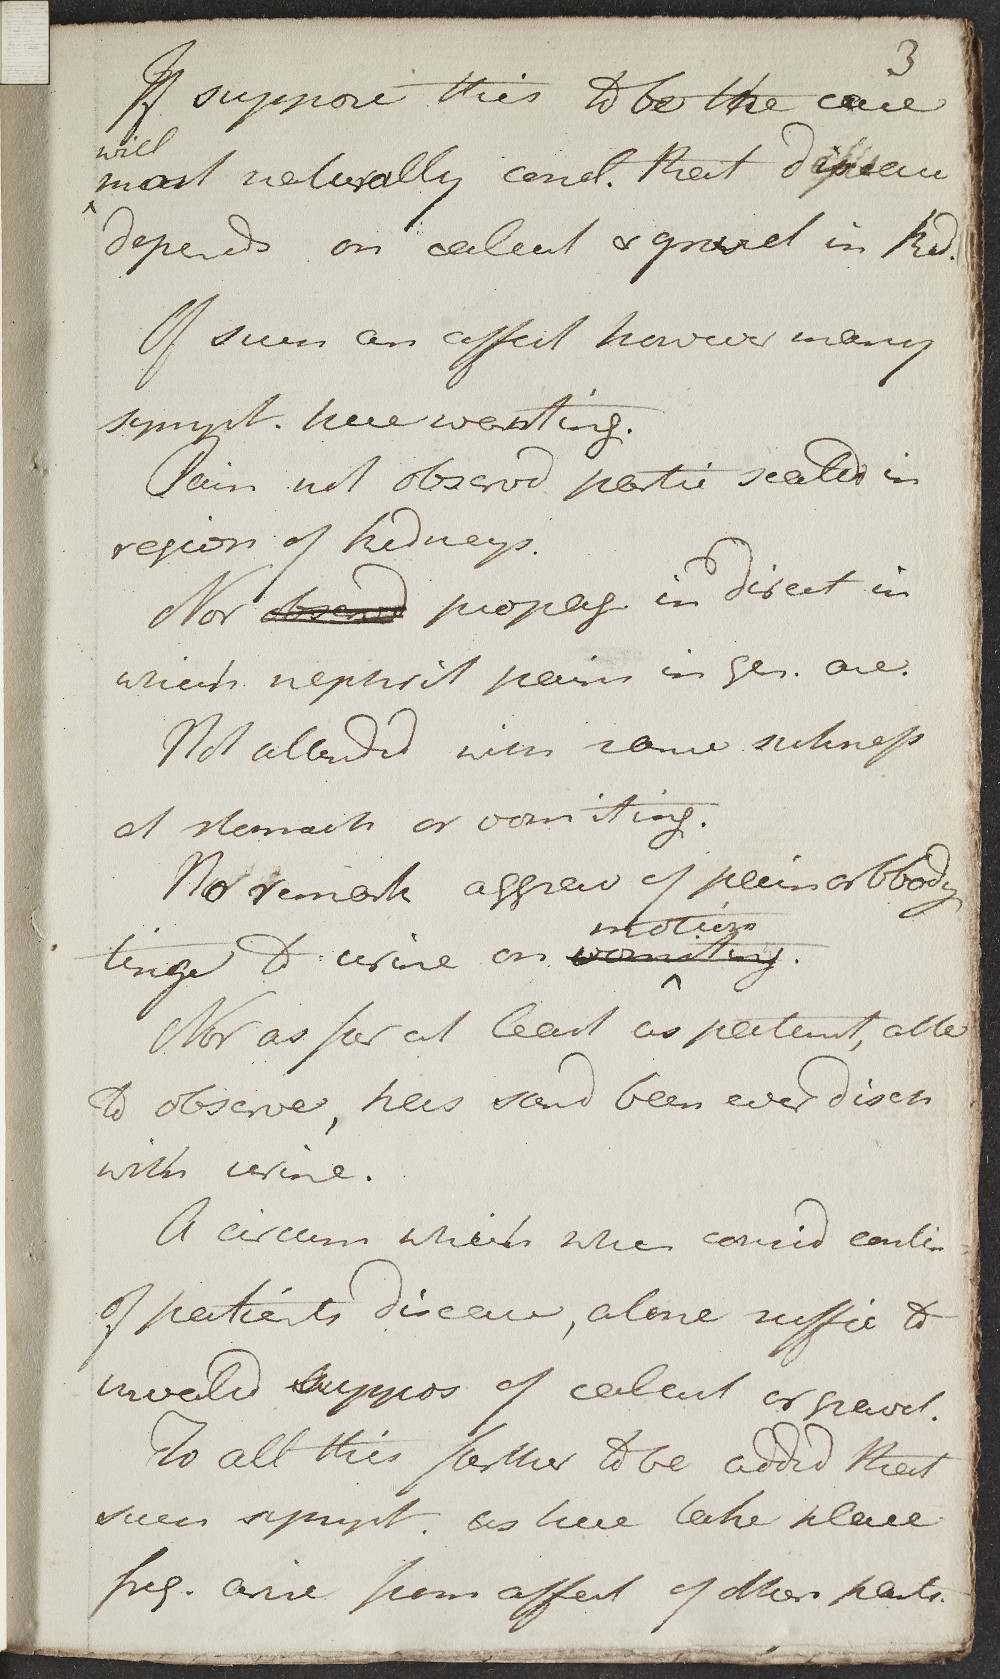 3
If suppose this to be the case
will
most naturally concl. that disease
depends on calcul & gravel in Kid.
Of such an affect however many
sympt. here wanting.
Pain not observd partic seated in
region of kidneys.
Nor observd propag in direct in
which nephrit pains in gen. are.
Not attended with same sickness
at stomach or vomiting.
No remark aggrav of pain or bloody
tinge to urine on vomiting.
motion
Nor as far at least as patient, able
to observe, has sand been ever disch
with urine.
A circum which when consid contin
of patients disease, alone suffic to
invalid suppos of calcul or gravel.
To all this farther to be added that
such sympt. as here take place
freq. arise from affect of other parts.